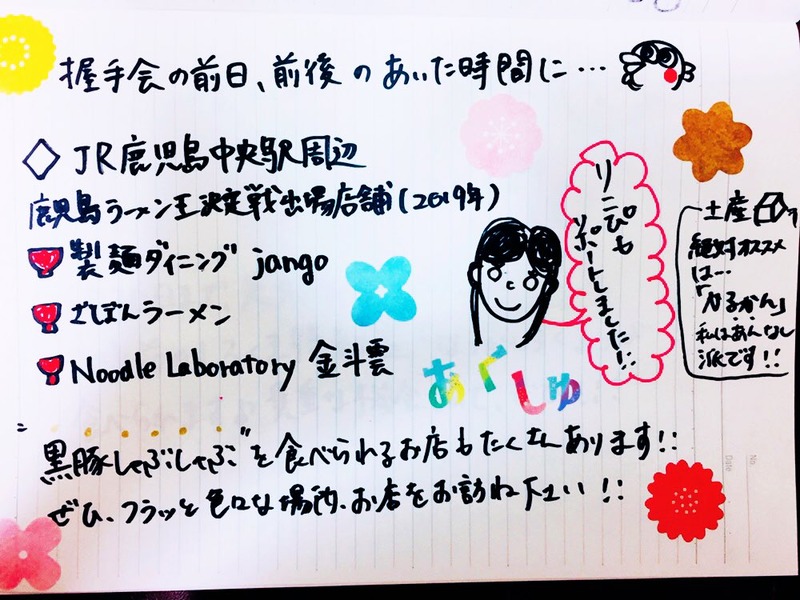 握手会の前日、前後のあいた時間に…
◇JR鹿児島中央駅周辺
鹿児島ラーメン王決定戦出場店舗(2019年)
製麺ダイニング jango
ざぼんラーメン
Noodle Laboratory 金斗雲
りこぴも
リポートしました!!
土産
絶対オススメ
は…
「かるかん」
私はあんなし
派です!!
あくしゅ
黒豚しゃぶしゃぶを食べられるお店もたくさんあります!!
ぜひ、フラッと色々な場所、お店をお訪ね下さい!!
No.
Date